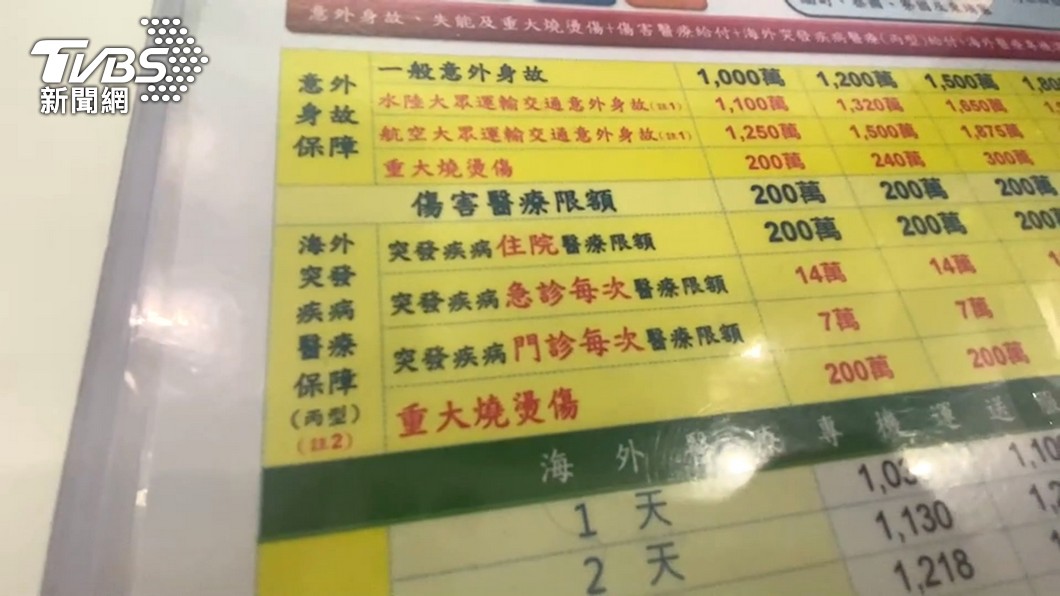 TVBS
新聞網
意外身故、失能及重大燒燙傷+傷害醫療給付+海外突發疾病醫療(丙型)給付+海外醫療專機
意外身故保障
一般意外身故 1,000萬 1,200萬 1,500萬
水陸大眾運輸交通意外身故(註1) 1,100萬 1,320萬 1,650萬
航空大眾運輸交通意外身故(註1) 1,250萬 1,500萬 1,875萬
重大燒燙傷 200萬 240萬 300萬
傷害醫療限額 200萬 200萬 200萬
海外突發疾病醫療保障(丙型)(註2)
突發疾病住院醫療限額 200萬 200萬
突發疾病急診每次醫療限額 14萬 14萬
突發疾病門診每次醫療限額 7萬 7萬
重大燒燙傷 200萬 200萬
海外醫療專機運送
1天
2天
1,130
1,218